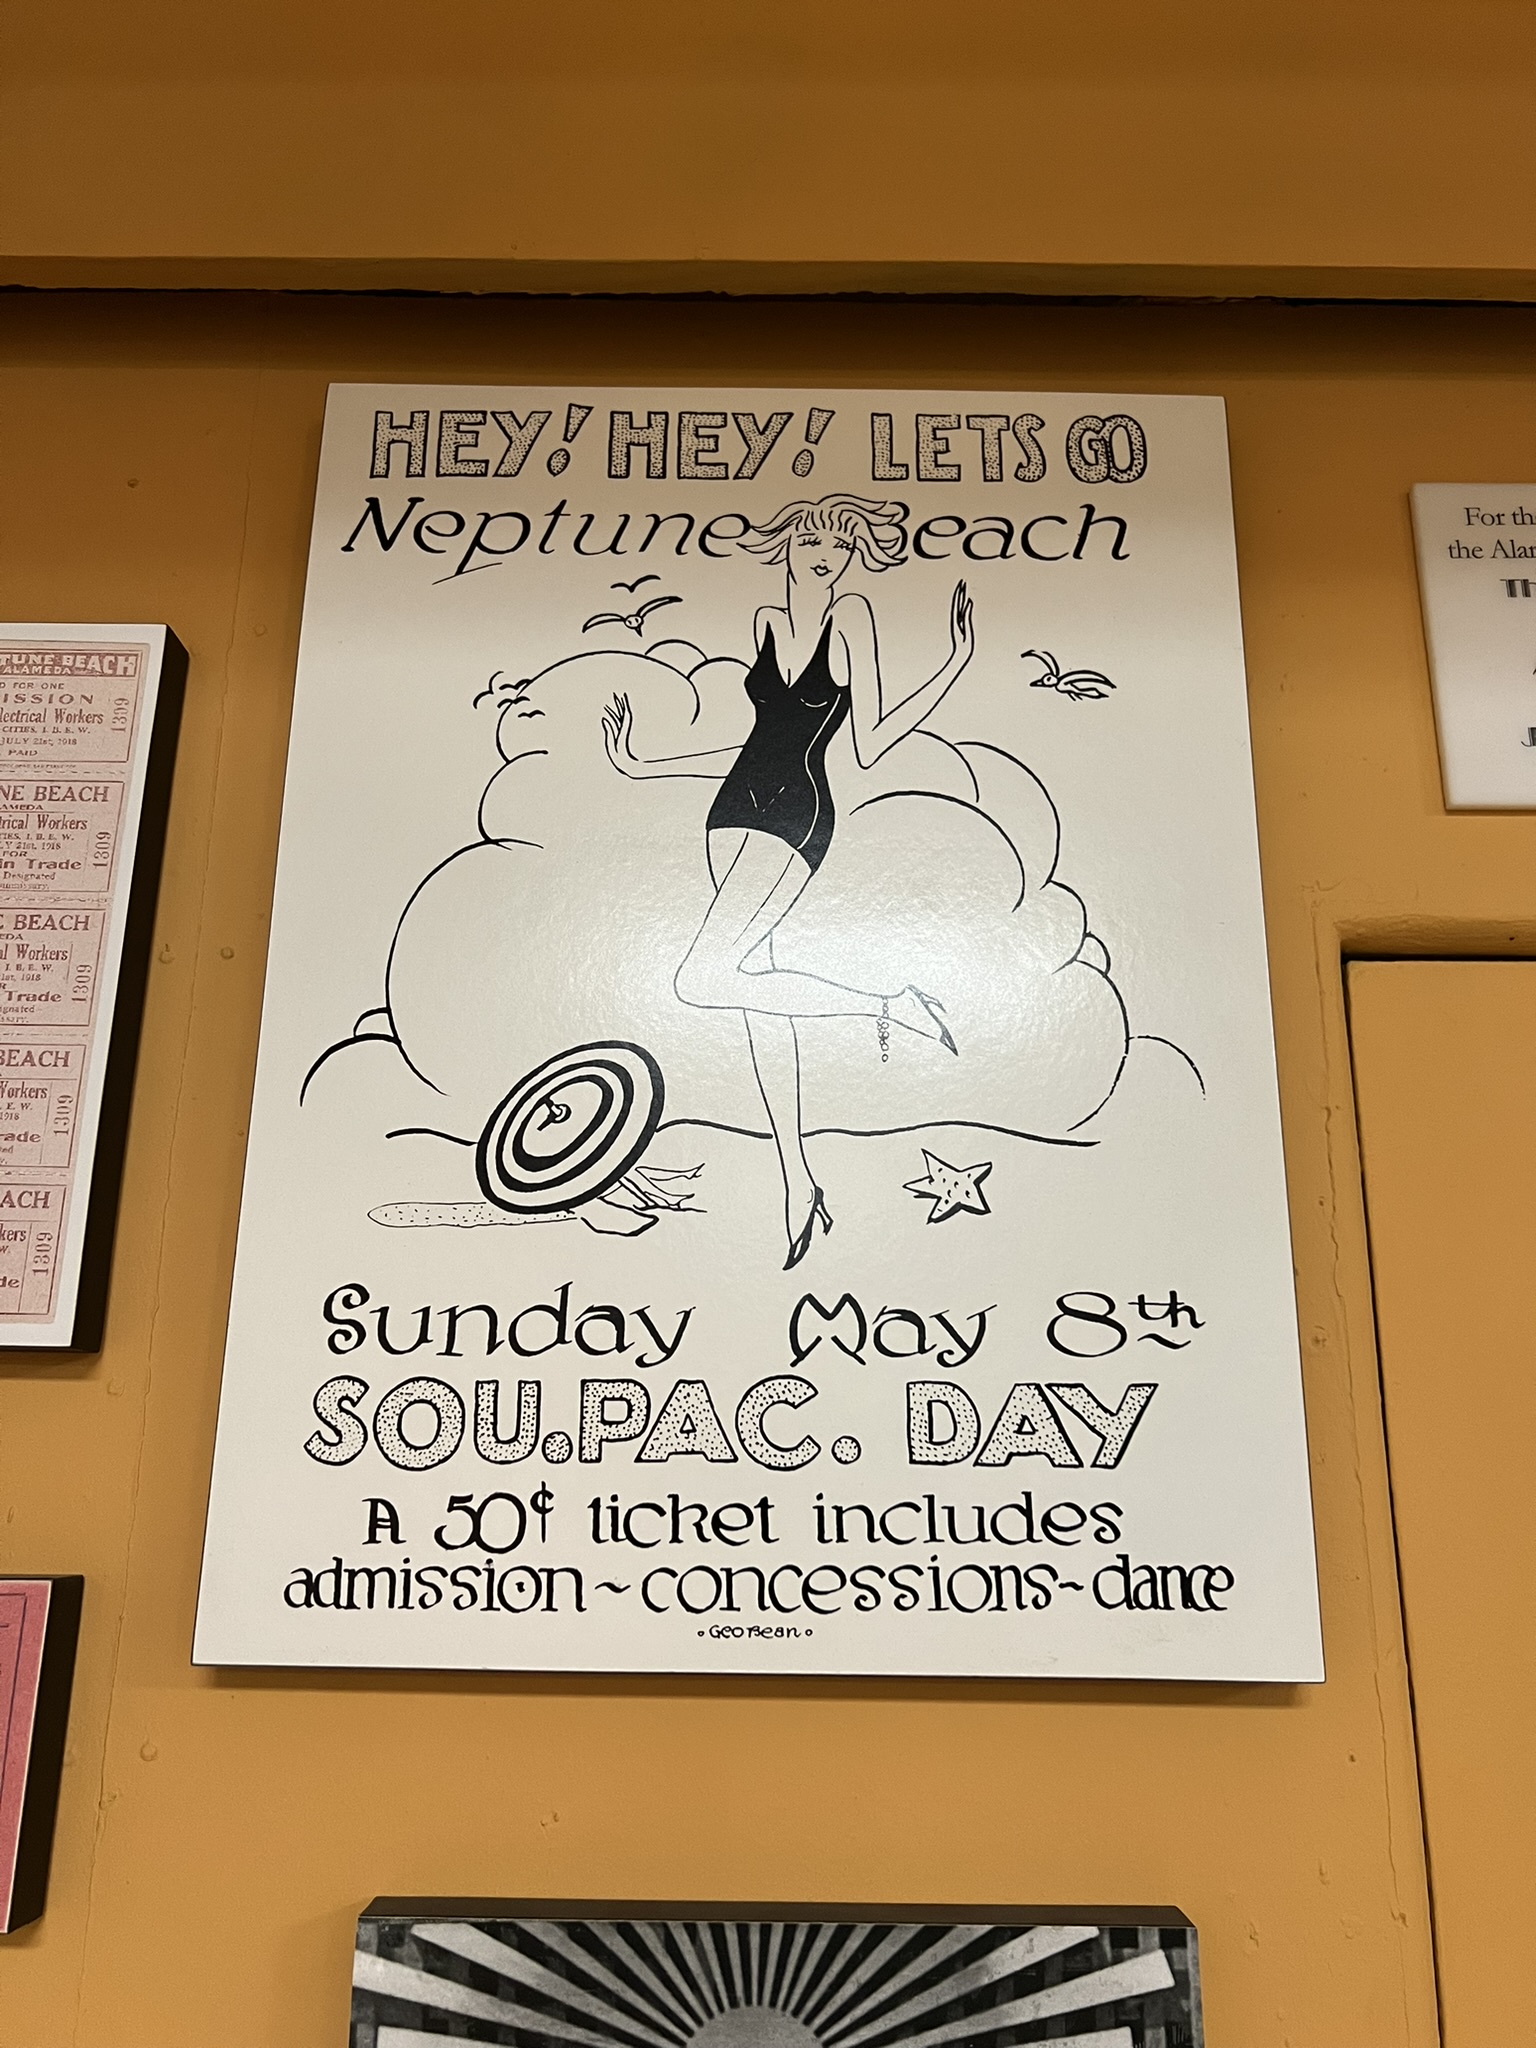 HEY! HEY! LETS GO
Neptune Beach
Sunday May 8th
SOU.PAC. DAY
A 50¢ ticket includes
admission~concessions~dance
GeoBean
TUNE BEACH
ALAMEDA
D FOR ONE
ISSION
lectrical Workers
CITIES, I. B. E. W.
JULY 21st, 1918
PAID
1309
NE BEACH
AMEDA
trical Workers
TIES, I. B. E. W.
LY 21st, 1918
FOR
in Trade
Designated
1309
E BEACH
EDA
al Workers
I. B. E. W.
1st, 1918
R
Trade
signated
1309
BEACH
Workers
E. W.
1918
rade
1309
ACH
kers
W.
de
1309
For th
the Alam
Th